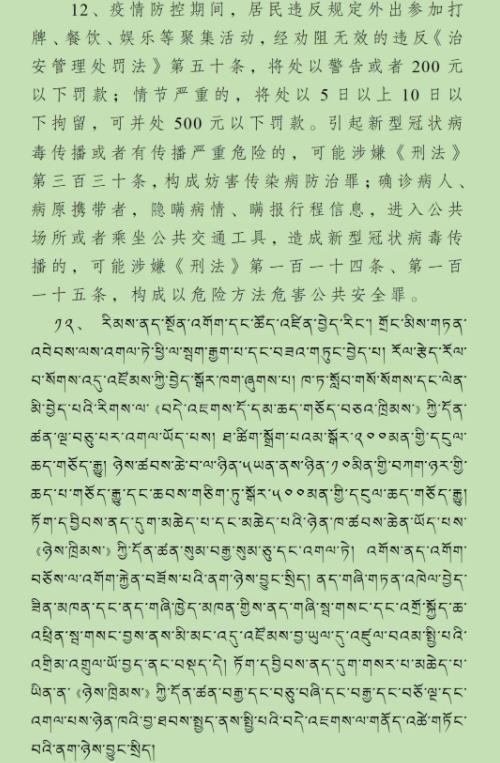 12、疫情防控期间，居民违反规定外出参加打
牌、餐饮、娱乐等聚集活动，经劝阻无效的违反《治
安管理处罚法》第五十条，将处以警告或者 200 元
以下罚款；情节严重的，将处以 5 日以上 10 日以
下拘留，可并处 500 元以下罚款。引起新型冠状病
毒传播或者有传播严重危险的，可能涉嫌《刑法》
第三百三十条，构成妨害传染病防治罪；确诊病人、
病原携带者，隐瞒病情、瞒报行程信息，进入公共
场所或者乘坐公共交通工具，造成新型冠状病毒传
播的，可能涉嫌《刑法》第一百一十四条、第一百
一十五条，构成以危险方法危害公共安全罪。
༡༢、 རིམས་ནད་སྔོན་འགོག་དང་ཚོད་འཛིན་བྱེད་རིང་། གྲོང་མིས་གཏན་
འབེབས་ལས་འགལ་ཏེ་ཕྱི་ལ་སྦག་རྒྱག་པ་དང་བཟའ་གཏུང་བྱེད་པ། རོལ་རྩེད་རོལ་
བ་སོགས་འདུ་འཛོམས་ཀྱི་བྱེད་སྒོར་ཁག་ཞུགས་པ། ཁ་ཏ་སློབ་གསོ་སོགས་དང་ལེན་
མི་བྱེད་པའི་རིགས་ལ་《བདེ་འཇགས་དོ་དམ་ཆད་གཅོད་བཅའ་ཁྲིམས་》ཀྱི་དོན་
ཚན་ལྔ་བཅུ་པར་འགལ་ཡོད་པས། ཐ་ཚིག་སྒྲོག་པའམ་སྒོར་༢༠༠མན་གྱི་དངུལ་
ཆད་གཅོད་རྒྱུ། ཉེས་ཚབས་ཆེ་བ་ལ་ཉིན་༥ཡན་ནས་ཉིན་༡༠མིན་གྱི་བཀག་ཉར་གྱི་
ཆད་པ་གཅོད་རྒྱུ་དང་ཆབས་གཅིག་ཏུ་སྒོར་༥༠༠མན་གྱི་དངུལ་ཆད་གཅོད་རྒྱུ།
ཏོག་དབྱིབས་ནད་དུག་མཆེད་པ་དང་མཆེད་པའི་ཉེན་ཁ་ཚབས་ཆེན་ཡོད་པས་
《ཉེས་ཁྲིམས་》ཀྱི་དོན་ཚན་སུམ་བརྒྱ་སུམ་ཅུ་དང་འགལ་ཏེ། འགོས་ནད་འགོག་
བཅོས་ལ་འགོག་རྐྱེན་བཟོས་པའི་ནག་ཉེས་བྱུང་སྲིད། ནད་གཞི་གཏན་འཁེལ་བྱེད་
ཟིན་མཁན་དང་ནད་གཞི་ཁྱེད་མཁན་གྱིས་ནད་གཞི་སྦ་གསང་དང་འགྲོ་སྐྱོད་ཆ་
འཕྲིན་སྦ་གསང་བྱས་ནས་མི་མང་འདུ་འཛོམས་བྱ་ཡུལ་དུ་འཛུལ་བའམ་སྤྱི་པའི་
འགྲིམ་འགྲུལ་ཡོ་བྱད་ནང་བསྡད་དེ། ཏོག་དབྱིབས་ནད་དུག་གསར་པ་མཆེད་པ་
ཡིན་ན་《ཉེས་ཁྲིམས་》ཀྱི་དོན་ཚན་བརྒྱ་དང་བཅུ་བཞི་དང་བརྒྱ་དང་བཅོ་ལྔ་དང་
འགལ་པས་ཉེན་ཁའི་བྱ་ཐབས་སྤྱད་ནས་སྤྱི་པའི་བདེ་འཇགས་ལ་གནོད་འཚེ་གཏོང་
བའི་ནག་ཉེས་བྱུང་སྲིད།